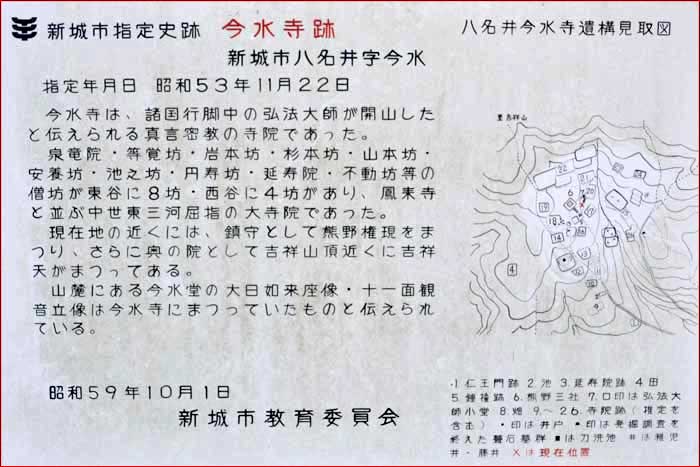 新城市指定史跡 今水寺跡
新城市八名井字今水
指定年月日 昭和53年11月22日
今水寺は、諸国行脚中の弘法大師が開山した
と伝えられる真言密教の寺院であった。
泉竜院・等覚坊・岩本坊・杉本坊・山本坊・
安養坊・池之坊・円寿坊・延寿院・不動坊等の
僧坊が東谷に8坊・西谷に4坊があり、鳳来寺
と並ぶ中世東三河屈指の大寺院であった。
現在地の近くには、鎮守として熊野権現をま
つり、さらに奥の院として吉祥山頂近くに吉祥
天がまつってある。
山麓にある今水堂の大日如来座像・十一面観
音立像は今水寺にまつっていたものと伝えられ
ている。
昭和59年10月1日
新城市教育委員会
八名井今水寺遺構見取図
至吉祥山
22
6
17
18
14
16
4
1.仁王門跡 2.池 3.延寿院跡 4.田
5.鐘楼跡 6.熊野三社 7.口印は弘法大
師小堂 8.畑 9.～26.寺院跡(推定を
含む) ・印は井戸 ・印は発掘調査を
終えた磐石墓群 ■は刀洗池 #は稚児
井・藤井 ×は現在位置